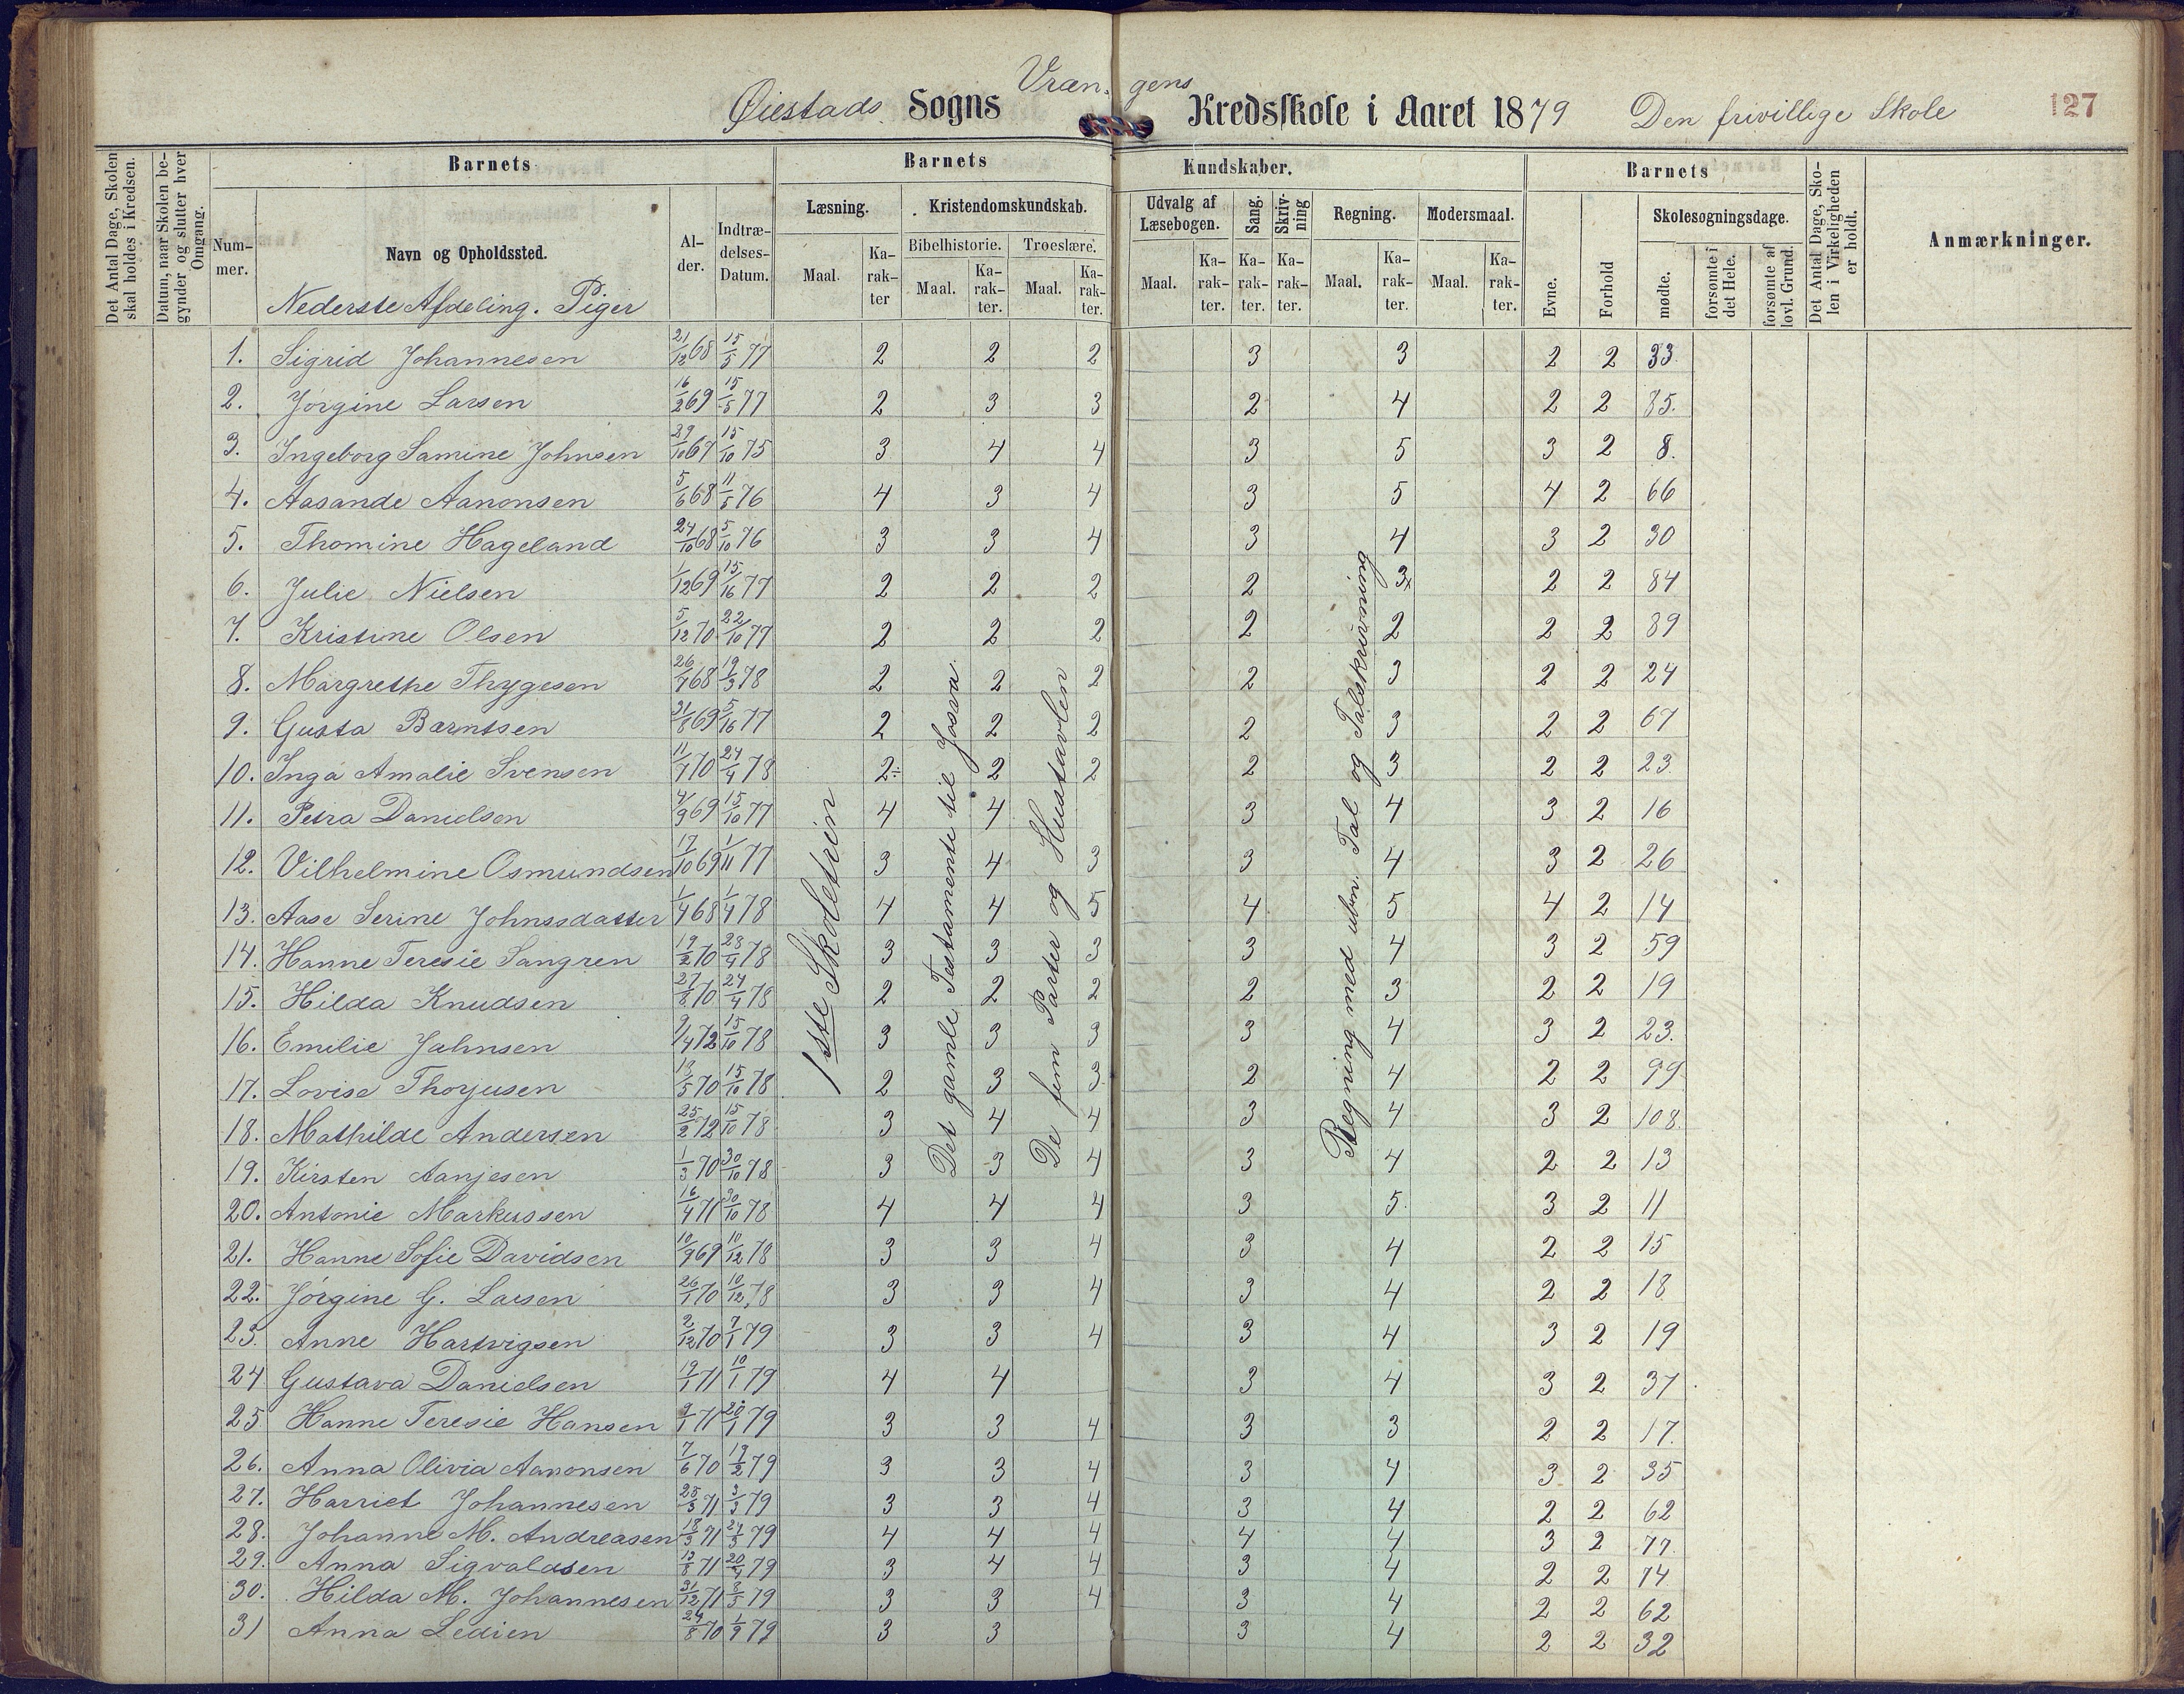 Øiestads Sogns Vræn- gens Kredsskole i Aaret 1879 Den frivillige Skole 127
Det Antal Dage, Skolen skal holdes i Kredsen.
Datum, naar Skolen begynder og slutter hver Omgang.
Barnets
Barnets Kundskaber.
Barnets
Det Antal Dage, Skolen i Virkeligheden er holdt.
Anmærkninger.
Nummer. Navn og Opholdssted. Alder. Indtrædelses-Datum.
Læsning. Kristendomskundskab. Udvalg af Læsebogen. Sang. Skrivning Regning. Modersmaal. Evne. Forhold Skolesøgningsdage.
Maal. Karakter Bibelhistorie. Troeslære.
Maal. Karakter. Maal. Karakter. Maal. Karakter. Karakter. Karakter. Maal. Karakter. Maal. Karakter. mødte. forsømte i det Hele. forsømte af lovl. Grund.
Nederste Afdeling. Piger
1ste Skoletrin
Det gamle Testamente til Josva
De fem Parter og Hustavlen
Regning med ubn. Tal og Talskrivning
1. Sigrid Johannesen 21/12 68 15/5 77 2 2 2 3 3 2 2 33.
2. Jørgine Larsen 16/2 69 15/5 77 2 3 3 2 4 2 2 85.
3. Ingeborg Samine Johnsen 29/10 67 15/10 75 3 4 4 3 5 3 2 8.
4. Aasande Aanonsen 5/6 68 11/5 76 4 3 4 3 5 4 2 66
5. Thomine Hageland 24/10 68 5/10 76 3 3 4 3 4 3 2 30
6. Julie Nielsen 1/12 69 15/16 77 2 2 2 2 3x 2 2 84
7. Kristine Olsen 5/12 70 22/10 77 2 2 2 2 2 2 2 89
8. Margrethe Thygesen 26/4 68 19/3 78 2 2 2 2 3 2 2 24
9. Gusta Barntsen 21/8 69 5/16 77 2 2 2 2 3 2 2 67
10. Inga Amalie Svensen 11/4 70 24/4 78 2÷ 2 2 2 3 2 2 23.
11. Petra Danielsen 4/9 69 15/10 77 4 4 3 4 3 2 16
12. Vilhelmine Osmundsen 17/10 69 1/11 77 3 4 3 3 4 3 2 26
13. Aase Serine Johnssdatter 1/4 68 1/4 78 4 4 5 4 5 4 2 14
14. Hanne Teresie Sangren 19/2 70 23/4 78 3 3 3 3 4 3 2 59
15. Hilda Knudsen 27/8 70 24/4 78 2 2 2 2 3 2 2 19
16. Emilie Jahnsen 9/4 72 15/10 78 3 3 3 3 4 3 2 23.
17. Lovise Thorjusen 13/5 70 15/10 78 2 3 3 2 4 2 2 99
18. Mathilde Andersen 25/2 72 15/10 78 3 4 4 3 4 3 2 108.
19. Kirsten Aanjesen 1/3 70 30/10 78 3 3 4 3 4 2 2 13
20. Antonie Markussen 16/4 71 30/10 78 4 4 4 3 5. 3 2 11
21. Hanne Sofie Davidsen 10/9 69 10/12 78 3 3 4 3 4 2 2 15
22. Jørgine G. Larsen 26/1 70 10/12 78 3 3 4 3 4 2 2 18
23. Anne Hartvigsen 2/12 70 7/1 79 3 3 4 3 4 3 2 19
24 Gustava Danielsen 19/1 71 10/1 79 4 4 3 4 3 2 37
25 Hanne Teresie Hansen 9/1 71 20/1 79 3 3 4 3 3 2 2 17.
26. Anna Olivia Aanonsen 7/6 70 19/2 79 3 3 4 3 4 3 2 35
27. Harriet Johannesen 25/3 71 3/3 79 3 3 4 3 4 2 2 62
28. Johanne M. Andreasen 18/3 71 24/3 79 4 4 4 4 4 3 2 77
29. Anna Sigvaldsen 13/8 71 20/4 79 3 4 4 3 4 2 2 74
30. Hilda M. Johannesen 31/12 71 8/5 79 3 3 4 3 4 2 2 62
31 Anna Ledien 24/8 70 1/9 79 3 3 3 4 2 2 32